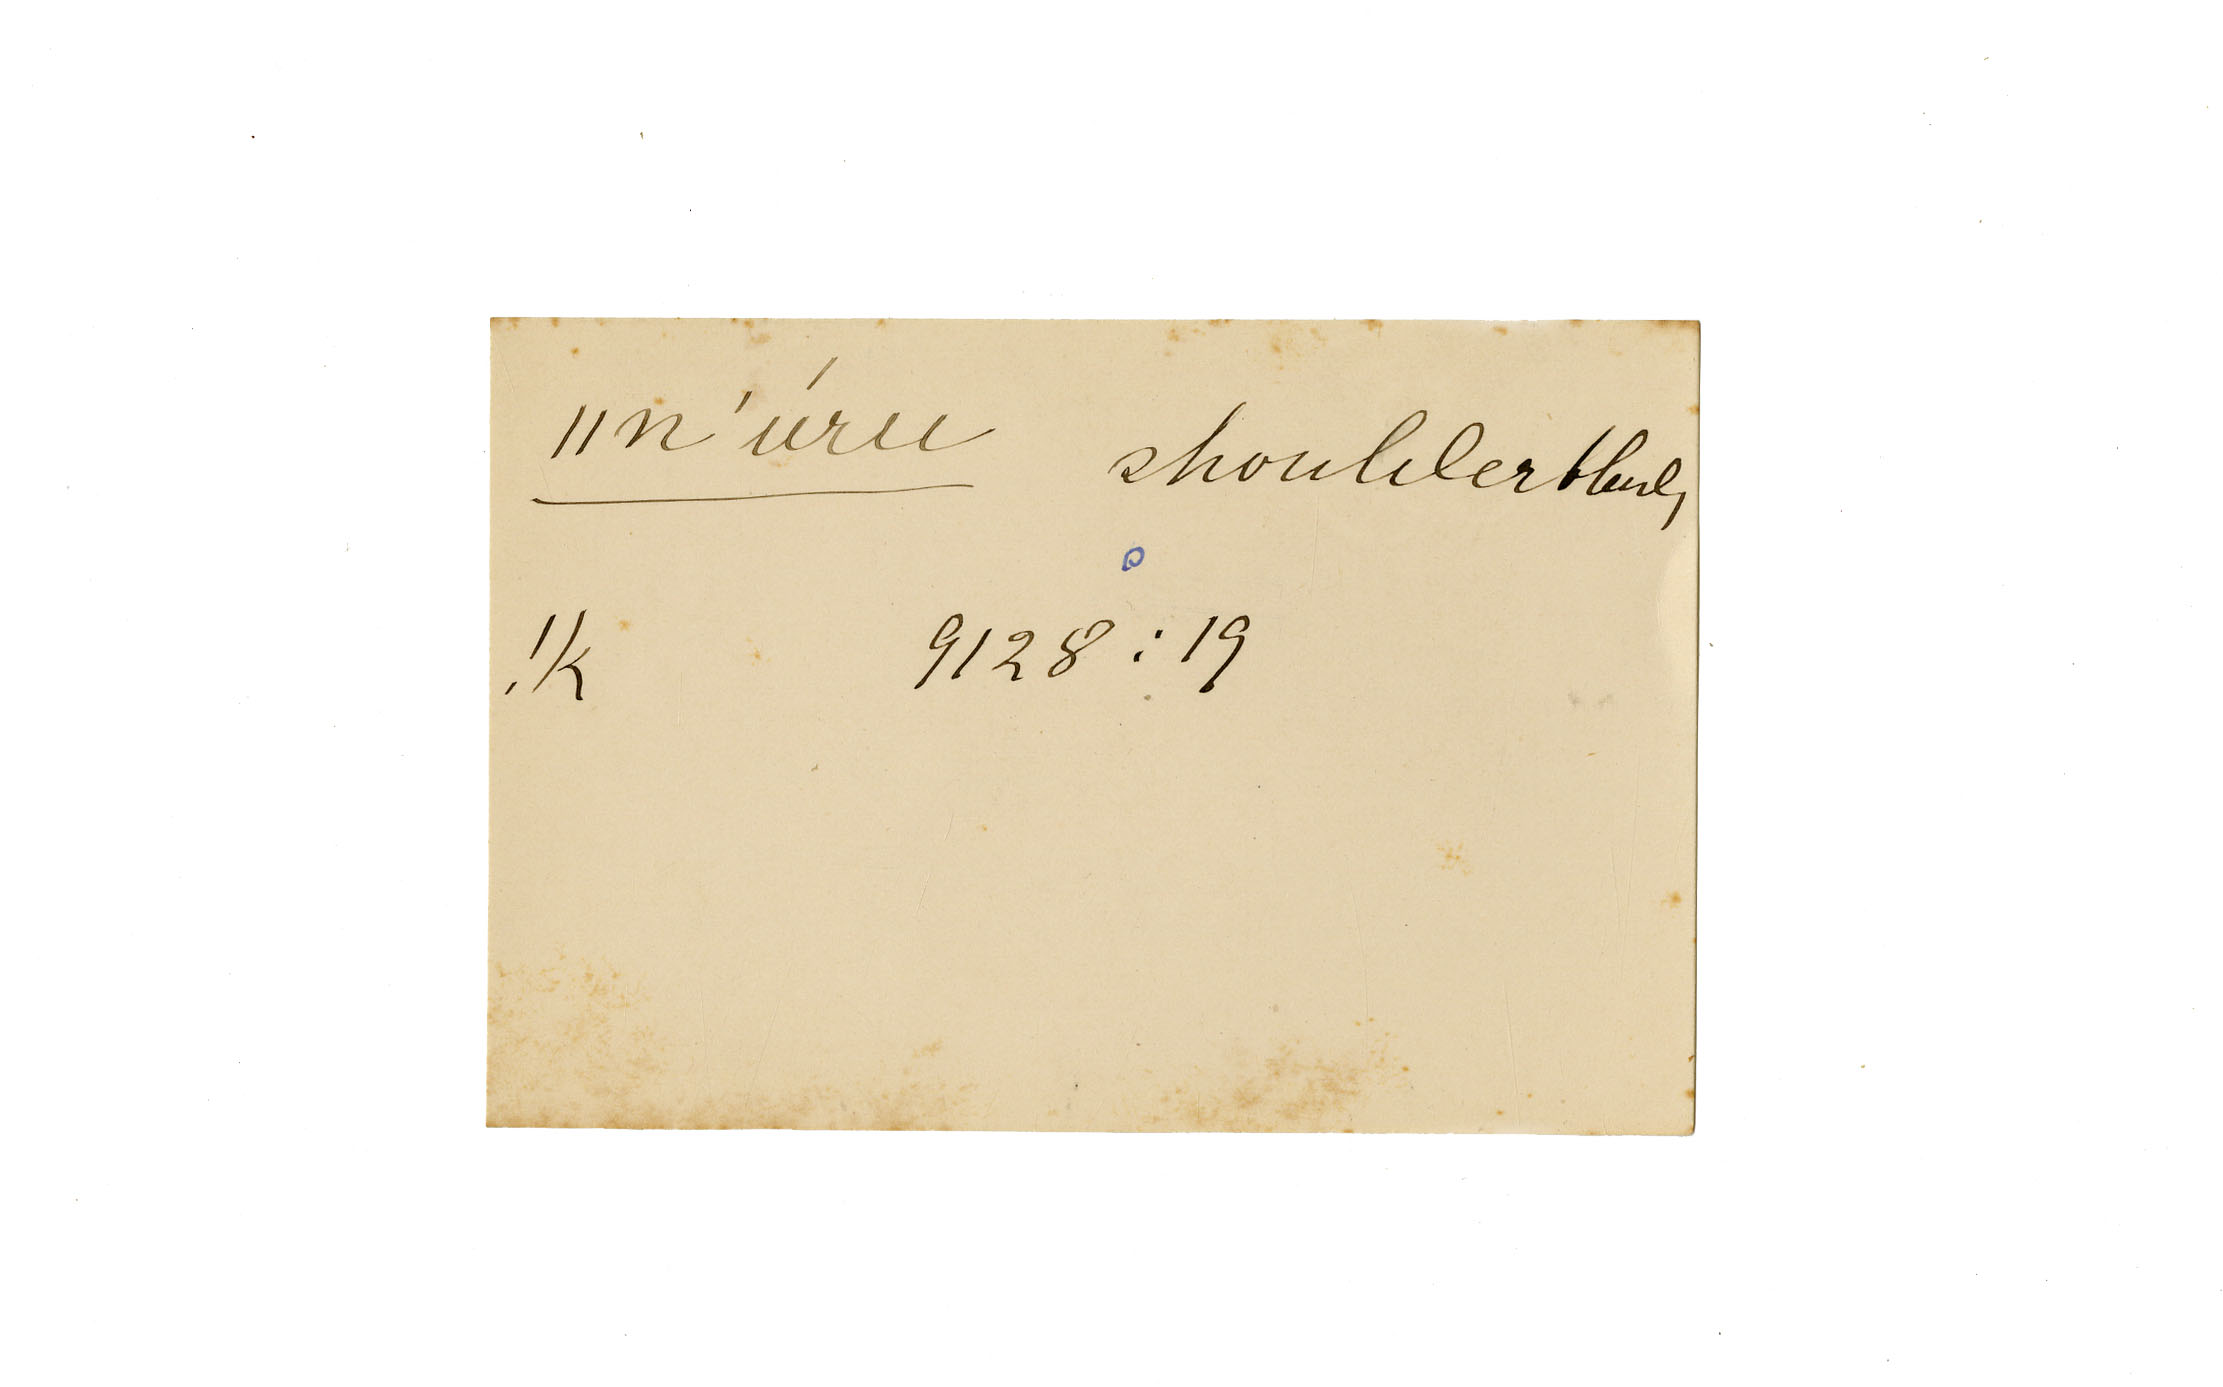 ǁn'úru shoulderblade,
!k 9128:19